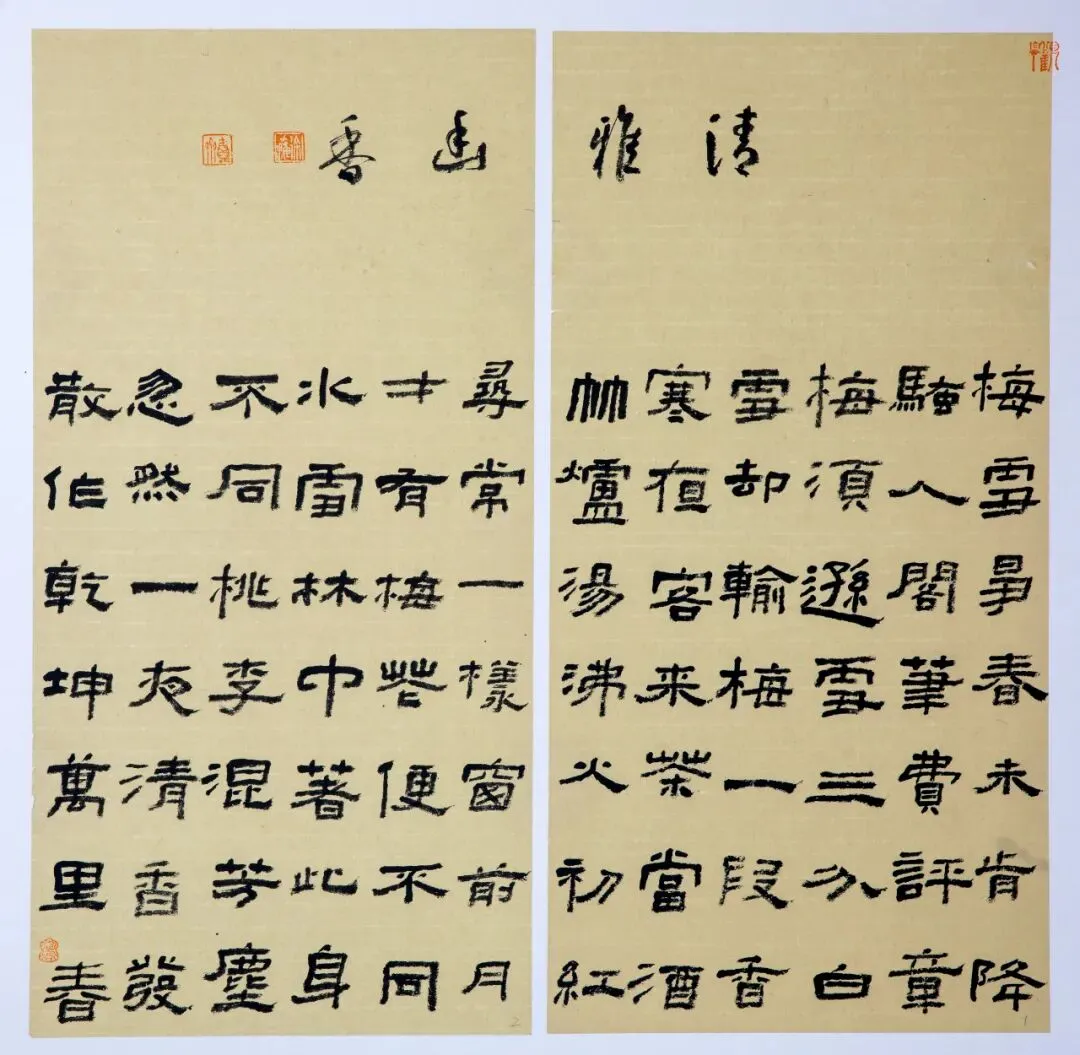 清雅
梅雪爭春未肯降
騷人閣筆費評章
梅須遜雪三分白
雪却輸梅一段香
寒夜客来茶當酒
竹爐湯沸火初紅
1
幽香
尋常一樣窗前月
才有梅花便不同
冰雪林中著此身
不同桃李混芳塵
忽然一夜清香發
散作乾坤萬里春
2